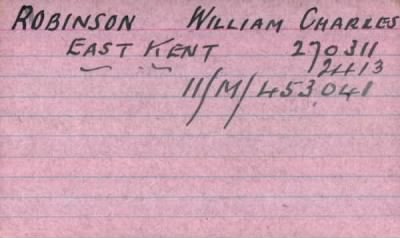 ROBINSON WILLIAM CHARLES
EAST KENT 270311
2413
11/M/453041